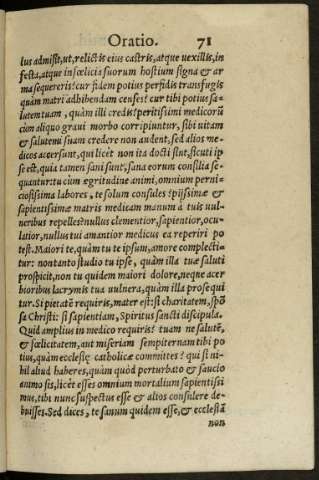 Oratio. 71
lus admisit, ut, relictis eius castris, atque uexillis, in
festa, atque infœlicia suorum hostium signa & ar
ma sequereris? cur fidem potius perfidis transfugis
quàm matri adhibendam censes? cur tibi potius sa-
lutem tuam, quàm illi credis? peritissimi medicorũ
cùm aliquo graui morbo corripiuntur, sibi uitam
& salutem suam credere non audent, sed alios me-
dicos accersunt, qui licèt non ita docti sint, sicuti ip
se est, quia tamen sani sunt, sana eorum consilia se-
quantur: tu cùm ægritudine animi, omnium perni-
ciosissima labores, te solum consules? pijssimæ &
sapientissimæ matris medicam manum à tuis uul-
neribus repelles? nullus clementior, sapientior, ocu-
latior, nullus tui amantior medicus ea reperiri po
test. Maiori te, quàm tu te ipsum, amore complecti-
tur: non tanto studio tu ipse, quàm illa tuæ saluti
prospicit, non tu quidem maiori dolore, neque acer
bioribus lacrymis tua uulnera, quàm illa prosequi
tur. Si pietatẽ requiris, mater est: si charitatem, spõ
sa Christi: si sapientiam, Spiritus sancti discipula.
Quid amplius in medico requiris? tuam ne salutẽ,
& fœlicitatem, aut miseriam sempiternam tibi po
tius, quàm ecclesiæ catholicæ committes? qui si ni-
hil aliud haberes, quàm quòd perturbato & saucio
animo sis, licèt esses omnium mortalium sapientissi
mus, tibi nunc suspectus esse & alios consulere de-
buisses. Sed dices, te sanum quidem esse, & ecclesiã
non